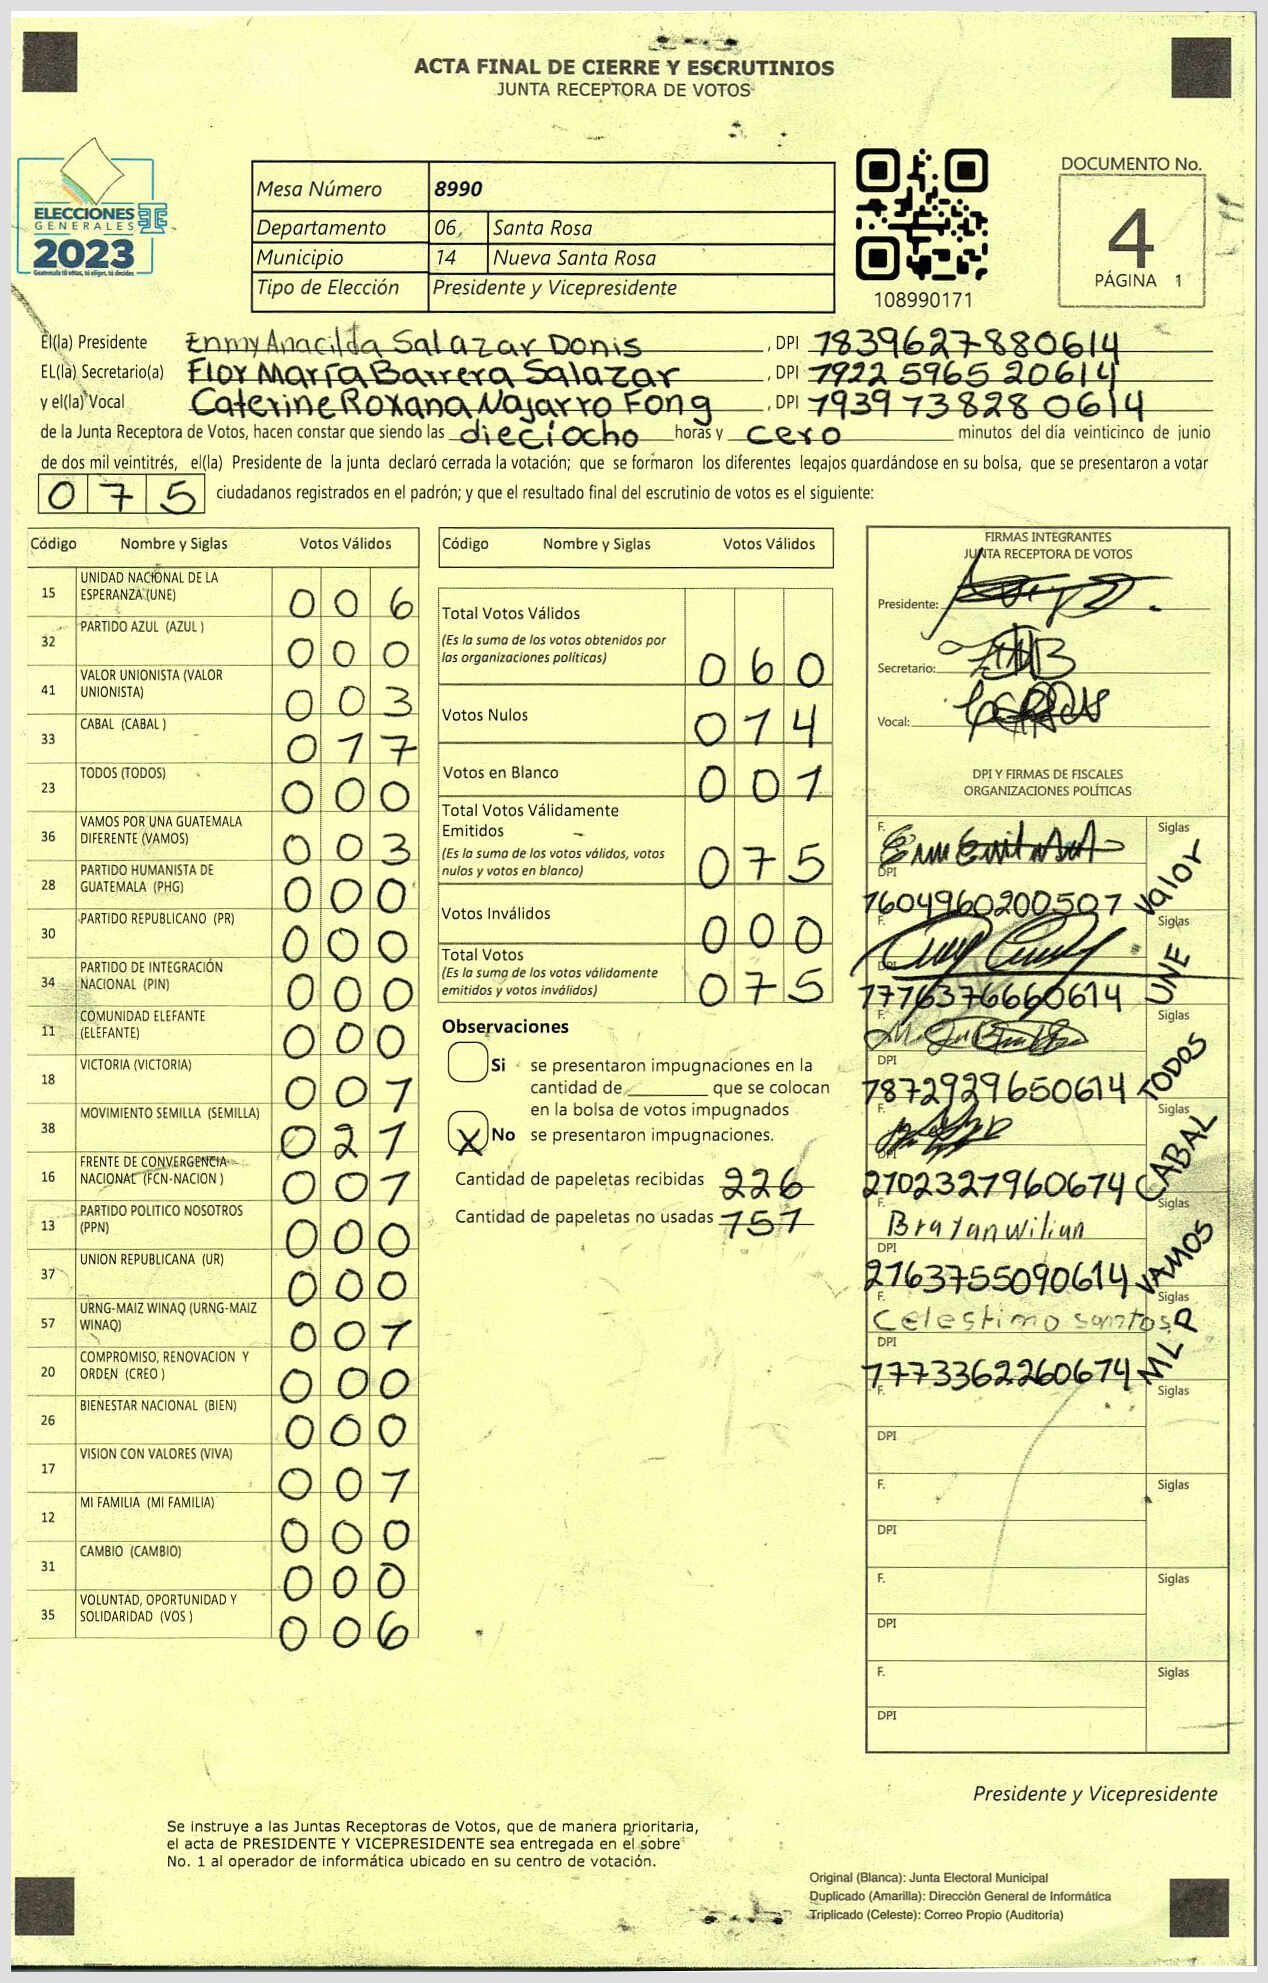 ACTA FINAL DE CIERRE Y ESCRUTINIOS
JUNTA RECEPTORA DE VOTOS
ELECCIONES
GENERALES
2023
Guatemala tú votas, tú eliges, tú decides
Mesa Número 8990
Departamento 06 Santa Rosa
Municipio 14 Nueva Santa Rosa
Tipo de Elección Presidente y Vicepresidente
108990171
DOCUMENTO No.
4
PÁGINA 1
El(la) Presidente Enmy Anacilda Salazar Donis, DPI 1839627880614
EL(la) Secretario(a) Flor María Barrera Salazar, DPI 1922 5965 20614
y el(la) Vocal Caterine Roxana Najarro Fong, DPI 1939 73828 0614
de la Junta Receptora de Votos, hacen constar que siendo las dieciocho horas y cero minutos del día veinticinco de junio
de dos mil veintitrés, el(la) Presidente de la junta declaró cerrada la votación; que se formaron los diferentes legajos quardándose en su bolsa, que se presentaron a votar
075 ciudadanos registrados en el padrón; y que el resultado final del escrutinio de votos es el siguiente:
Código Nombre y Siglas Votos Válidos
15 UNIDAD NACIONAL DE LA
ESPERANZA (UNE) 006
32 PARTIDO AZUL (AZUL ) 000
41 VALOR UNIONISTA (VALOR
UNIONISTA) 003
33 CABAL (CABAL ) 017
23 TODOS (TODOS) 000
36 VAMOS POR UNA GUATEMALA
DIFERENTE (VAMOS) 003
28 PARTIDO HUMANISTA DE
GUATEMALA (PHG) 000
30 PARTIDO REPUBLICANO (PR) 000
34 PARTIDO DE INTEGRACIÓN
NACIONAL (PIN) 000
11 COMUNIDAD ELEFANTE
(ELEFANTE) 000
18 VICTORIA (VICTORIA) 001
38 MOVIMIENTO SEMILLA (SEMILLA) 021
16 FRENTE DE CONVERGENCIA
NACIONAL (FCN-NACION ) 001
13 PARTIDO POLITICO NOSOTROS
(PPN) 000
37 UNION REPUBLICANA (UR) 000
57 URNG-MAIZ WINAQ (URNG-MAIZ
WINAQ) 001
20 COMPROMISO, RENOVACION Y
ORDEN (CREO ) 000
26 BIENESTAR NACIONAL (BIEN) 000
17 VISION CON VALORES (VIVA) 001
12 MI FAMILIA (MI FAMILIA) 000
31 CAMBIO (CAMBIO) 000
35 VOLUNTAD, OPORTUNIDAD Y
SOLIDARIDAD (VOS ) 006
Código Nombre y Siglas Votos Válidos
Total Votos Válidos
(Es la suma de los votos obtenidos por
las organizaciones políticas) 060
Votos Nulos 014
Votos en Blanco 001
Total Votos Válidamente
Emitidos
(Es la suma de los votos válidos, votos
nulos y votos en blanco) 075
Votos Inválidos 000
Total Votos
(Es la suma de los votos válidamente
emitidos y votos inválidos) 075
Observaciones
Si se presentaron impugnaciones en la
cantidad de ________ que se colocan
en la bolsa de votos impugnados
X No se presentaron impugnaciones.
Cantidad de papeletas recibidas 226
Cantidad de papeletas no usadas 151
FIRMAS INTEGRANTES
JUNTA RECEPTORA DE VOTOS
Presidente:
Secretario:
Vocal:
DPI Y FIRMAS DE FISCALES
ORGANIZACIONES POLÍTICAS
F. Siglas
DPI
1604960200507 Valor
F. Siglas
DPI
1776376660614 UNE
F. Siglas
DPI
1872929650614 TODOS
F. Siglas
DPI
2102327960614 CABAL
F. Brayan wilian Siglas
DPI
2163755090614 VAMOS
F. Celestimo santos Siglas
DPI
1773362260614 MLP
F. Siglas
DPI
F. Siglas
DPI
F. Siglas
DPI
F. Siglas
DPI
Presidente y Vicepresidente
Se instruye a las Juntas Receptoras de Votos, que de manera prioritaria,
el acta de PRESIDENTE Y VICEPRESIDENTE sea entregada en el sobre
No. 1 al operador de informática ubicado en su centro de votación.
Original (Blanca): Junta Electoral Municipal
Duplicado (Amarilla): Dirección General de Informática
Triplicado (Celeste): Correo Propio (Auditoría)